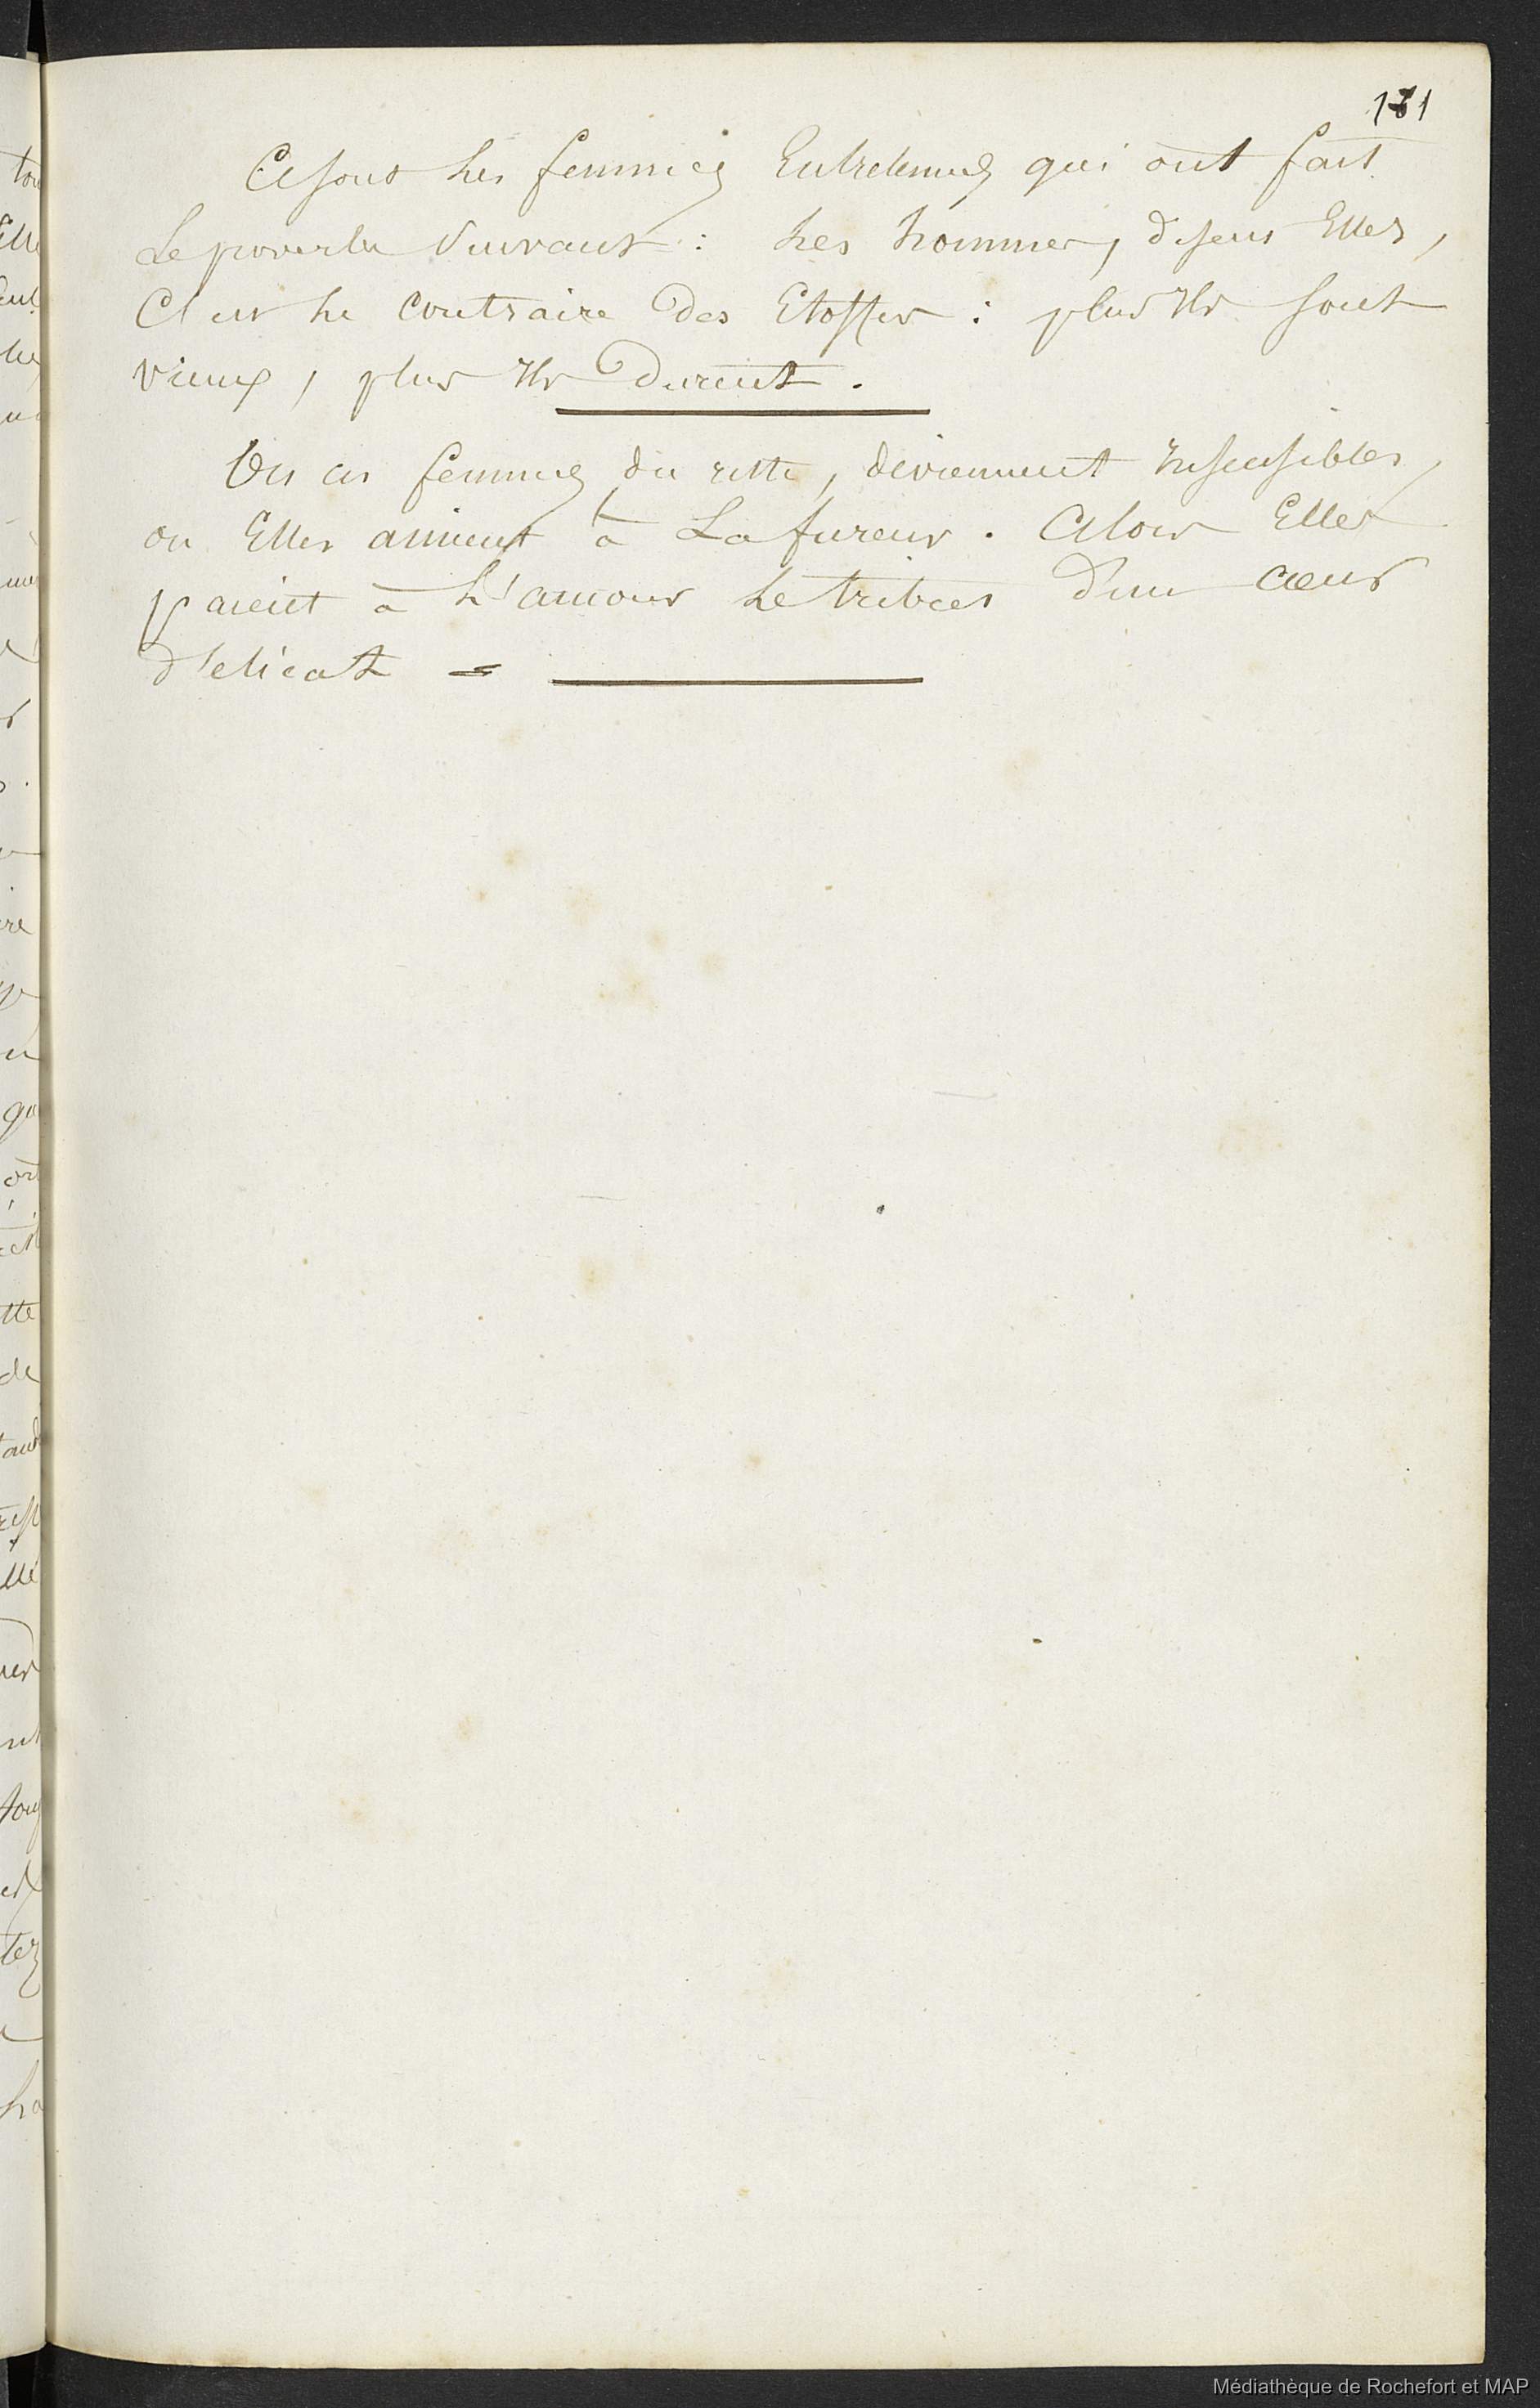 181
Ce sont les femmes Entretenues qui ont fait
Le proverbe suivant : Les hommes, disent Elles,
C'est le contraire des Etoffes : plus Ils sont
vieux, plus Ils Durent .
Ou ces femmes du reste, deviennent Insensibles,
ou Elles aiment à La fureur . Alors Elles
paient à L'amour Le tribut D'un cœur
délicat =
Médiathèque de Rochefort et MAP